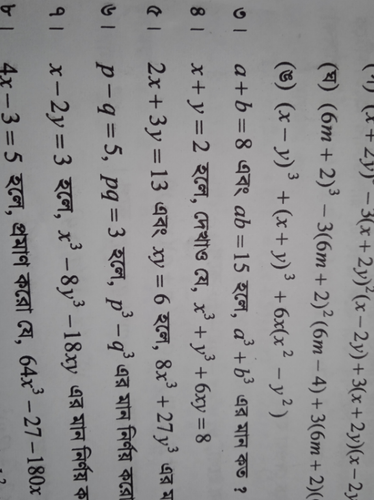 (x + 2y)³ − 3(x + 2y)²(x − 2y) + 3(x + 2y)(x − 2y
(ঘ) (6m + 2)³ − 3(6m + 2)²(6m − 4) + 3(6m + 2)(
(ঙ) (x − y)³ + (x + y)³ + 6x(x² − y²)
৩। a + b = 8 এবং ab = 15 হলে, a³ + b³ এর মান কত ?
৪। x + y = 2 হলে, দেখাও যে, x³ + y³ + 6xy = 8
৫। 2x + 3y = 13 এবং xy = 6 হলে, 8x³ + 27y³ এর
৬। p − q = 5, pq = 3 হলে, p³ − q³ এর মান নির্ণয় করো
৭। x − 2y = 3 হলে, x³ − 8y³ − 18xy এর মান নির্ণয়
৮। 4x − 3 = 5 হলে, প্রমাণ করো যে, 64x³ − 27 − 180x